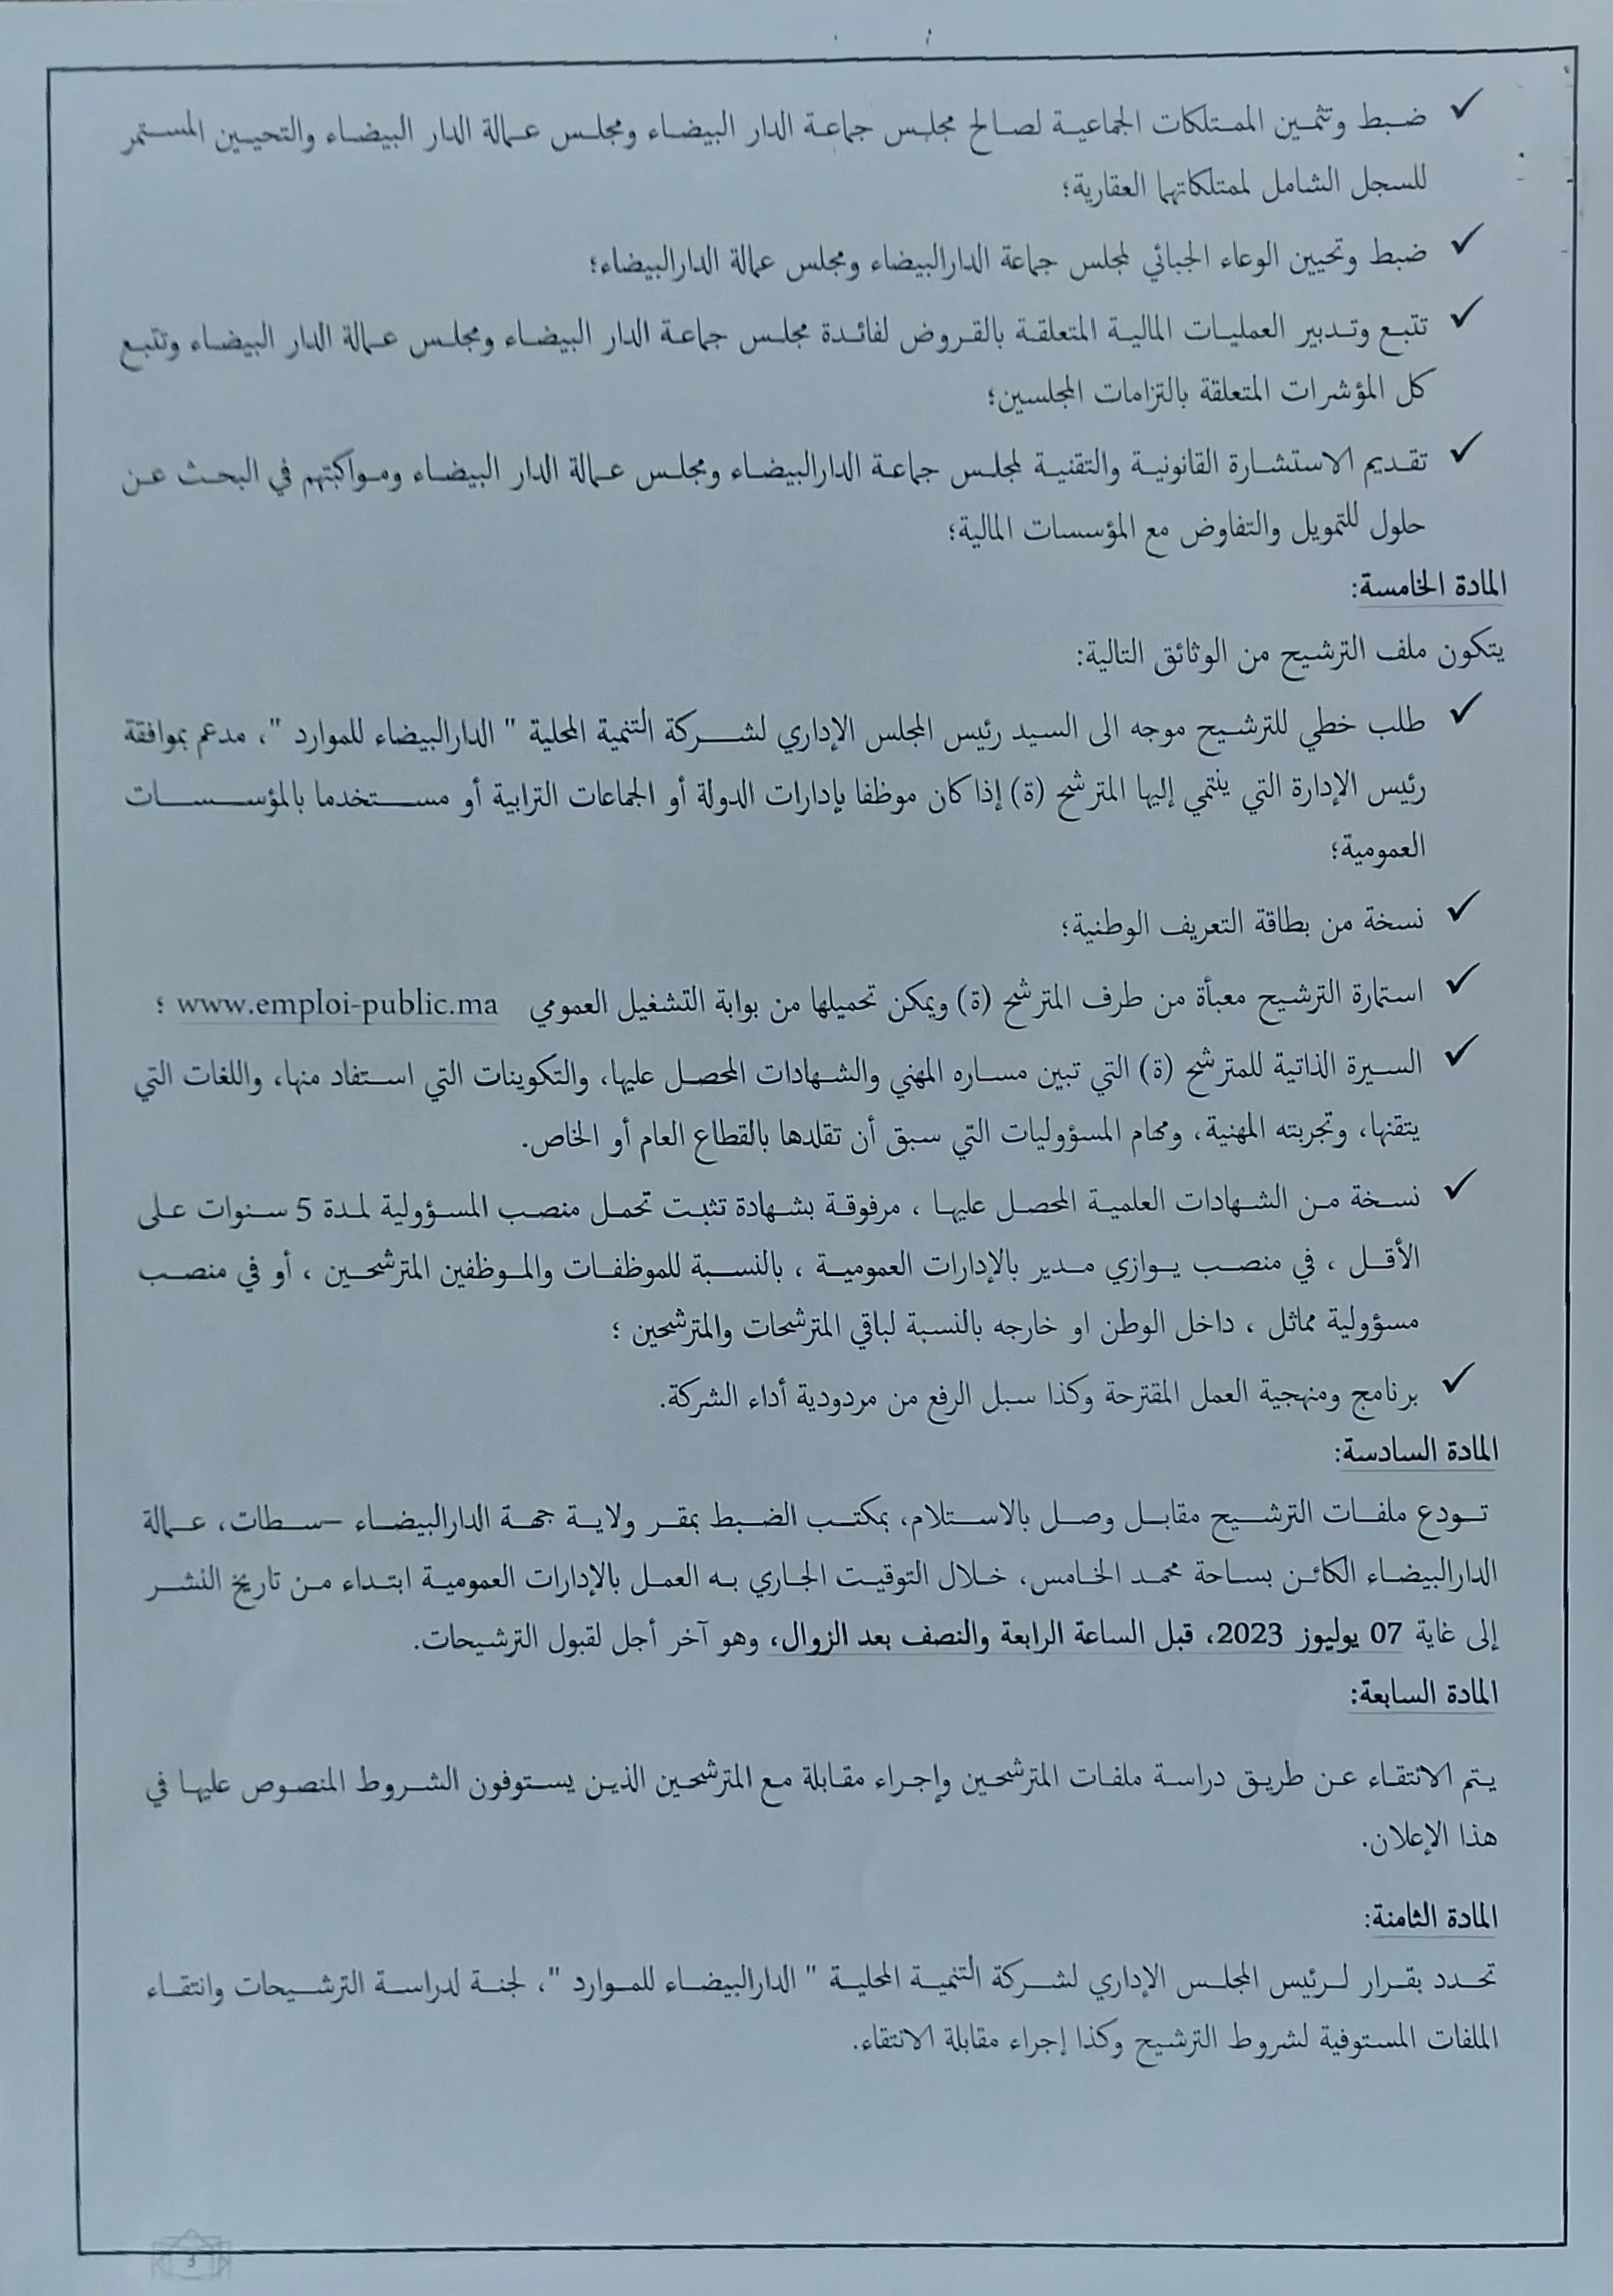 ✓ ضبط وتثمين الممتلكات الجماعية لصالح مجلس جماعة الدار البيضاء ومجلس عمالة الدار البيضاء والتحيين المستمر
للسجل الشامل لممتلكاتهما العقارية؛
✓ ضبط وتحيين الوعاء الجبائي لمجلس جماعة الدارالبيضاء ومجلس عمالة الدارالبيضاء؛
✓ تتبع وتدبير العمليات المالية المتعلقة بالقروض لفائدة مجلس جماعة الدار البيضاء ومجلس عمالة الدار البيضاء وتتبع
كل المؤشرات المتعلقة بالتزامات المجلسين؛
✓ تقديم الاستشارة القانونية والتقنية لمجلس جماعة الدارالبيضاء ومجلس عمالة الدار البيضاء ومواكبتهم في البحث عن
حلول للتمويل والتفاوض مع المؤسسات المالية؛
المادة الخامسة:
يتكون ملف الترشيح من الوثائق التالية:
✓ طلب خطي للترشيح موجه الى السيد رئيس المجلس الإداري لشركة التنمية المحلية " الدارالبيضاء للموارد "، مدعم بموافقة
رئيس الإدارة التي ينتمي إليها المترشح (ة) إذا كان موظفا بإدارات الدولة أو الجماعات الترابية أو مستخدما بالمؤسسات
العمومية؛
✓ نسخة من بطاقة التعريف الوطنية؛
✓ استمارة الترشيح معبأة من طرف المترشح (ة) ويمكن تحميلها من بوابة التشغيل العمومي www.emploi-public.ma ؛
✓ السيرة الذاتية للمترشح (ة) التي تبين مساره المهني والشهادات المحصل عليها، والتكوينات التي استفاد منها، واللغات التي
يتقنها، وتجربته المهنية، ومهام المسؤوليات التي سبق أن تقلدها بالقطاع العام أو الخاص.
✓ نسخة من الشهادات العلمية المحصل عليها ، مرفوقة بشهادة تثبت تحمل منصب المسؤولية لمدة 5 سنوات على
الأقل ، في منصب يوازي مدير بالإدارات العمومية ، بالنسبة للموظفات والموظفين المترشحين ، أو في منصب
مسؤولية مماثل ، داخل الوطن او خارجه بالنسبة لباقي المترشحات والمترشحين ؛
✓ برنامج ومنهجية العمل المقترحة وكذا سبل الرفع من مردودية أداء الشركة.
المادة السادسة:
تودع ملفات الترشيح مقابل وصل بالاستلام، بمكتب الضبط بمقر ولاية جهة الدارالبيضاء –سطات، عمالة
الدارالبيضاء الكائن بساحة محمد الخامس، خلال التوقيت الجاري به العمل بالإدارات العمومية ابتداء من تاريخ النشر
إلى غاية 07 يوليوز 2023، قبل الساعة الرابعة والنصف بعد الزوال، وهو آخر أجل لقبول الترشيحات.
المادة السابعة:
يتم الانتقاء عن طريق دراسة ملفات المترشحين وإجراء مقابلة مع المترشحين الذين يستوفون الشروط المنصوص عليها في
هذا الإعلان.
المادة الثامنة:
تحدد بقرار لرئيس المجلس الإداري لشركة التنمية المحلية " الدارالبيضاء للموارد "، لجنة لدراسة الترشيحات وانتقاء
الملفات المستوفية لشروط الترشيح وكذا إجراء مقابلة الانتقاء.
3